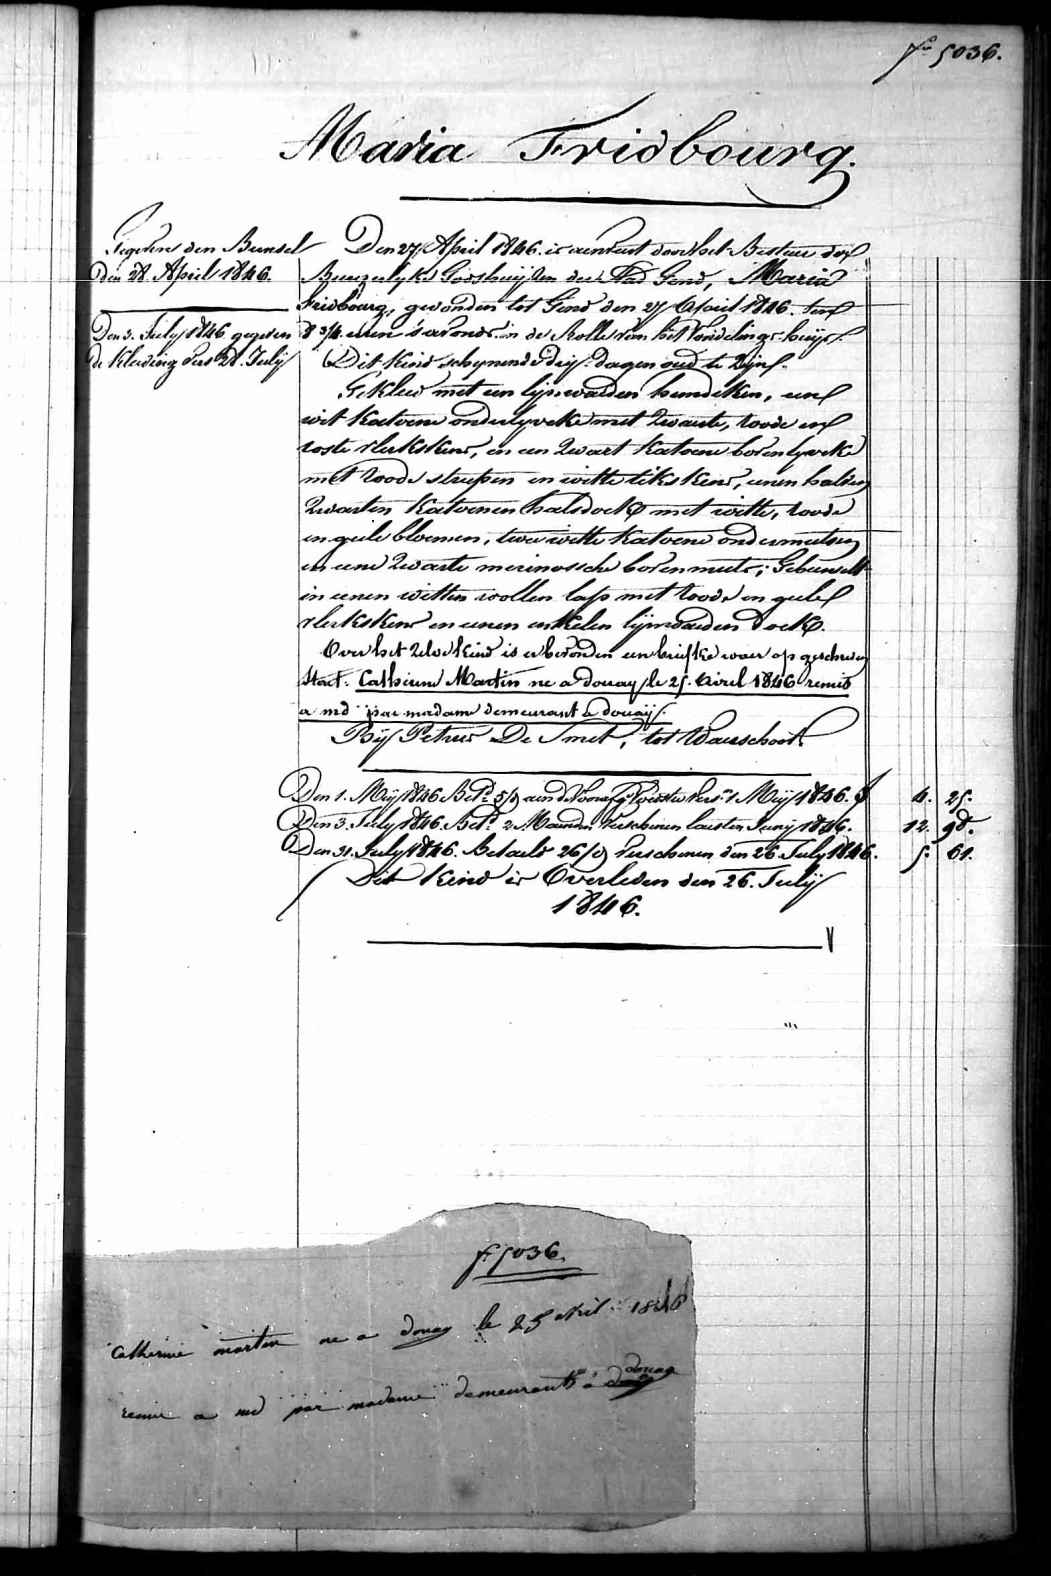 f° 5036.
Maria Fridbourg.
Gegeven den Bunsel
Den 28. April 1846.
Den 3. July 1846 gegeven
de kleeding Sers 28. July
Den 27 April 1846. is aenveert door het Bestuer der
Burgerlyke Godshuijzen der Stad Gend, Maria
Fridbourg, gevonden tot Gend den 27 April 1846. ten
8 3/4 uren s'avonds in de Rolle van het Vondelings-huijs.
Dit Kind schynende dry dagen oud te Zijn.
Gekleed met een lijnwaeden hemdeken, een
wit katoene onderlyveke met Zwarte, roode en
roste vlerkskens, en een Zwart katoene bovenlyveke
met roode streepen en witte tikskens, eenen halven
Zwarten katoenen halsdoek met witte, roode
en geele bloemen, twee witte katoene ondermutsen
en eene Zwarte merinossche bovenmuts; Gebunselt
in eenen witten wollen lap met roode en geele
vlerkskens en eenen enkelen lijnwaeden doek.
Over het Zelve kind is er bevonden een briefke waer op geschreven
staet. Catherine Martin ne a douay le 25. Avril 1846 remis
a md par madame demeurant a douaij.
Bij Petrus De Smet, tot Waerschoot.
Den 1. Meij 1846 Bet.d 5/9 aen d' Voorz. Voester Vers. 1 Meij 1846. f 4. 25.
Den 3. July 1846. Bet.d 2 Maenden Verschenen laesten Junij 1846. 12. 98.
Den 31. July 1846. Betaeld 26/9 Verschenen den 26 July 1846. 5. 61.
Dit Kind is Overleden den 26. Julij
1846.
f° 5036.
Catherine martin ne a douay le 25 avril 1846
remis a md par madame demeurant a douay